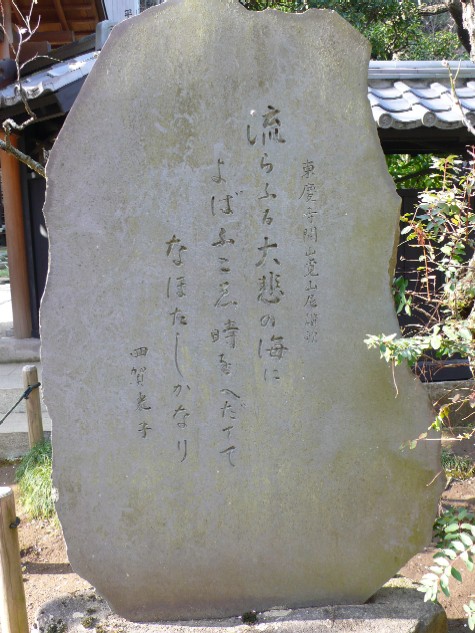 東慶寺開山覚山尼讃歌
流らふる大悲の海に
よばふこゑ時をへだてて
なほたしかなり
四賀光子